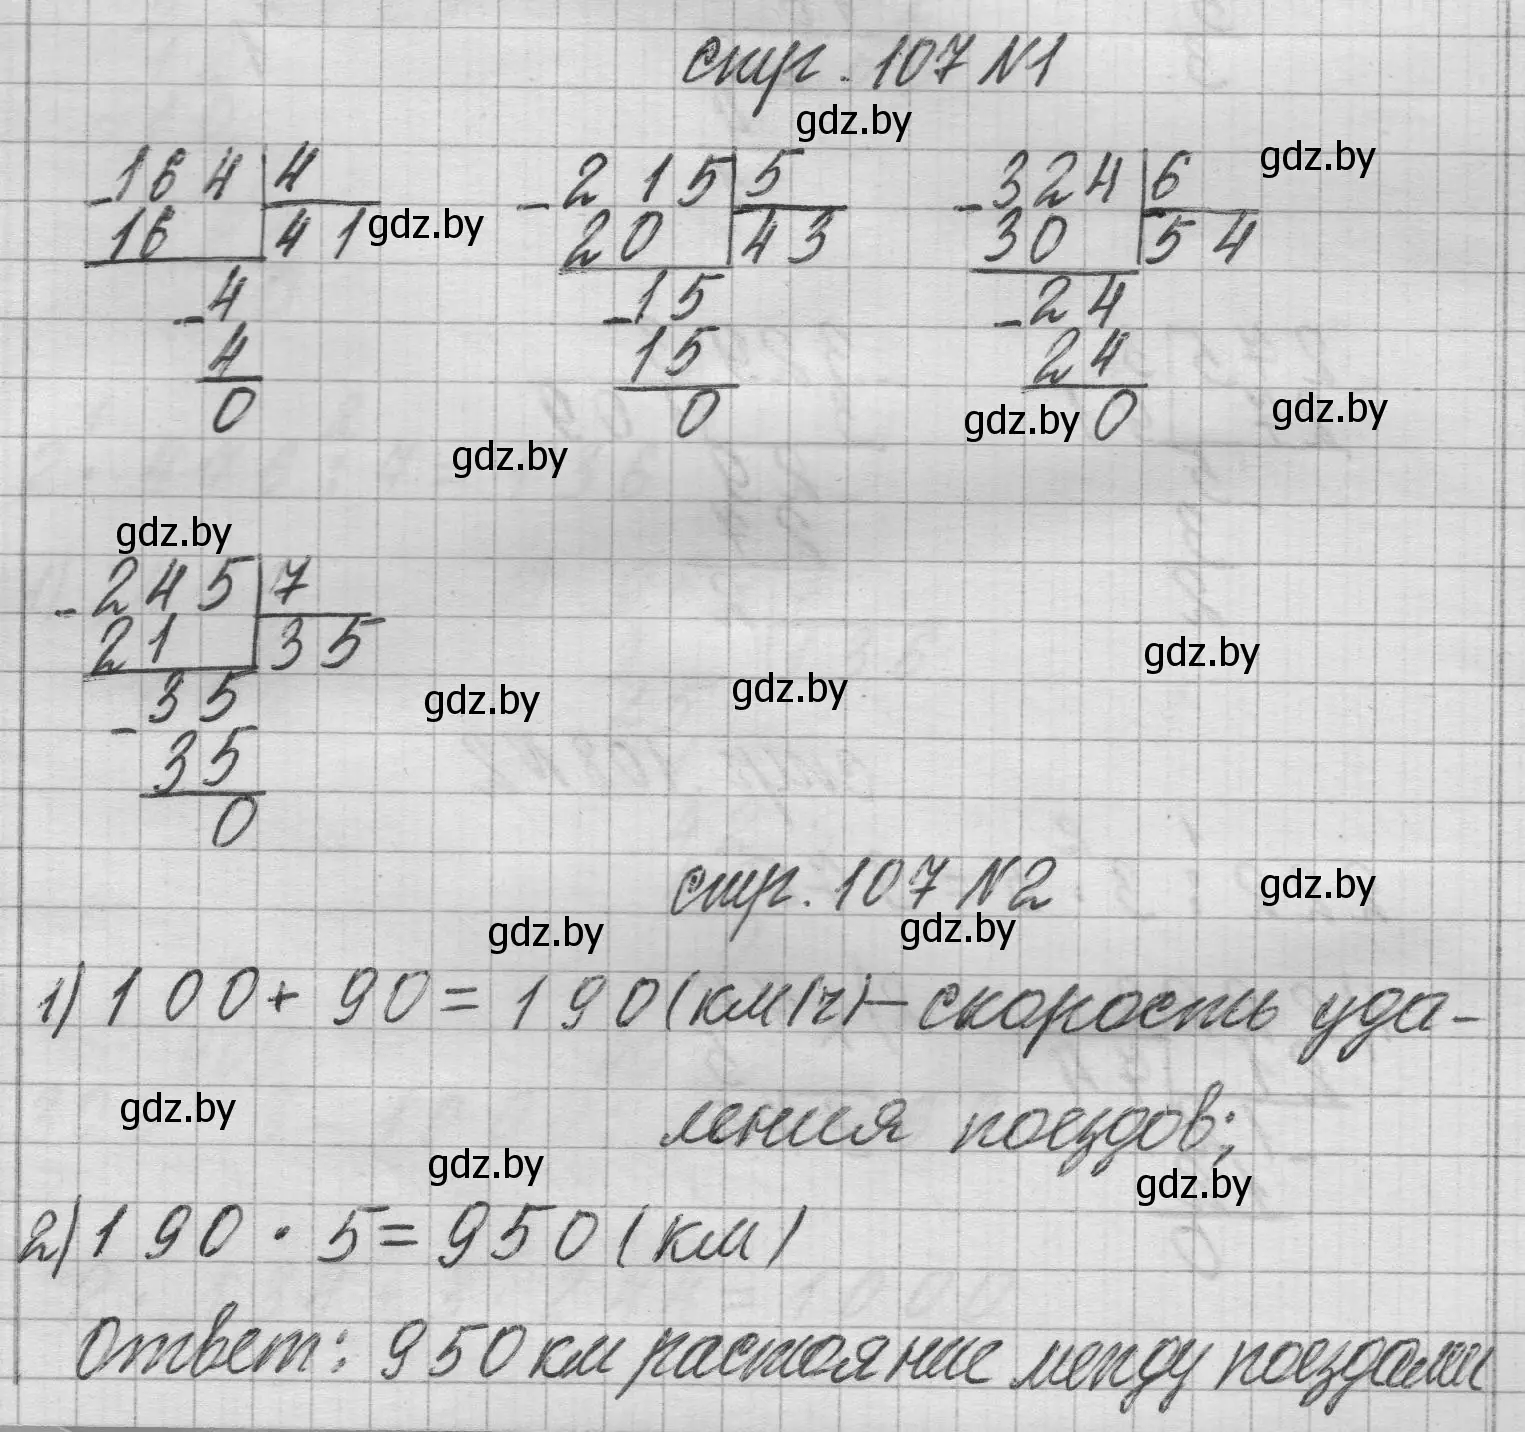 стр. 107 N1
gdz.by
gdz.by
-164 | 4
16 | 41
gdz.by
-4
4
0
-215 | 5
20 | 43
-15
15
0
-324 | 6
30 | 54
-24
24
0
gdz.by
gdz.by
gdz.by
gdz.by
-245 | 7
21 | 35
-35
35
0
gdz.by
gdz.by
gdz.by
стр. 107 N2
gdz.by
gdz.by
gdz.by
1) 100 + 90 = 190 (км/ч) - скорость уда-
gdz.by
ления поездов;
gdz.by
gdz.by
2) 190 · 5 = 950 (км)
Ответ: 950 км растояние между поездами